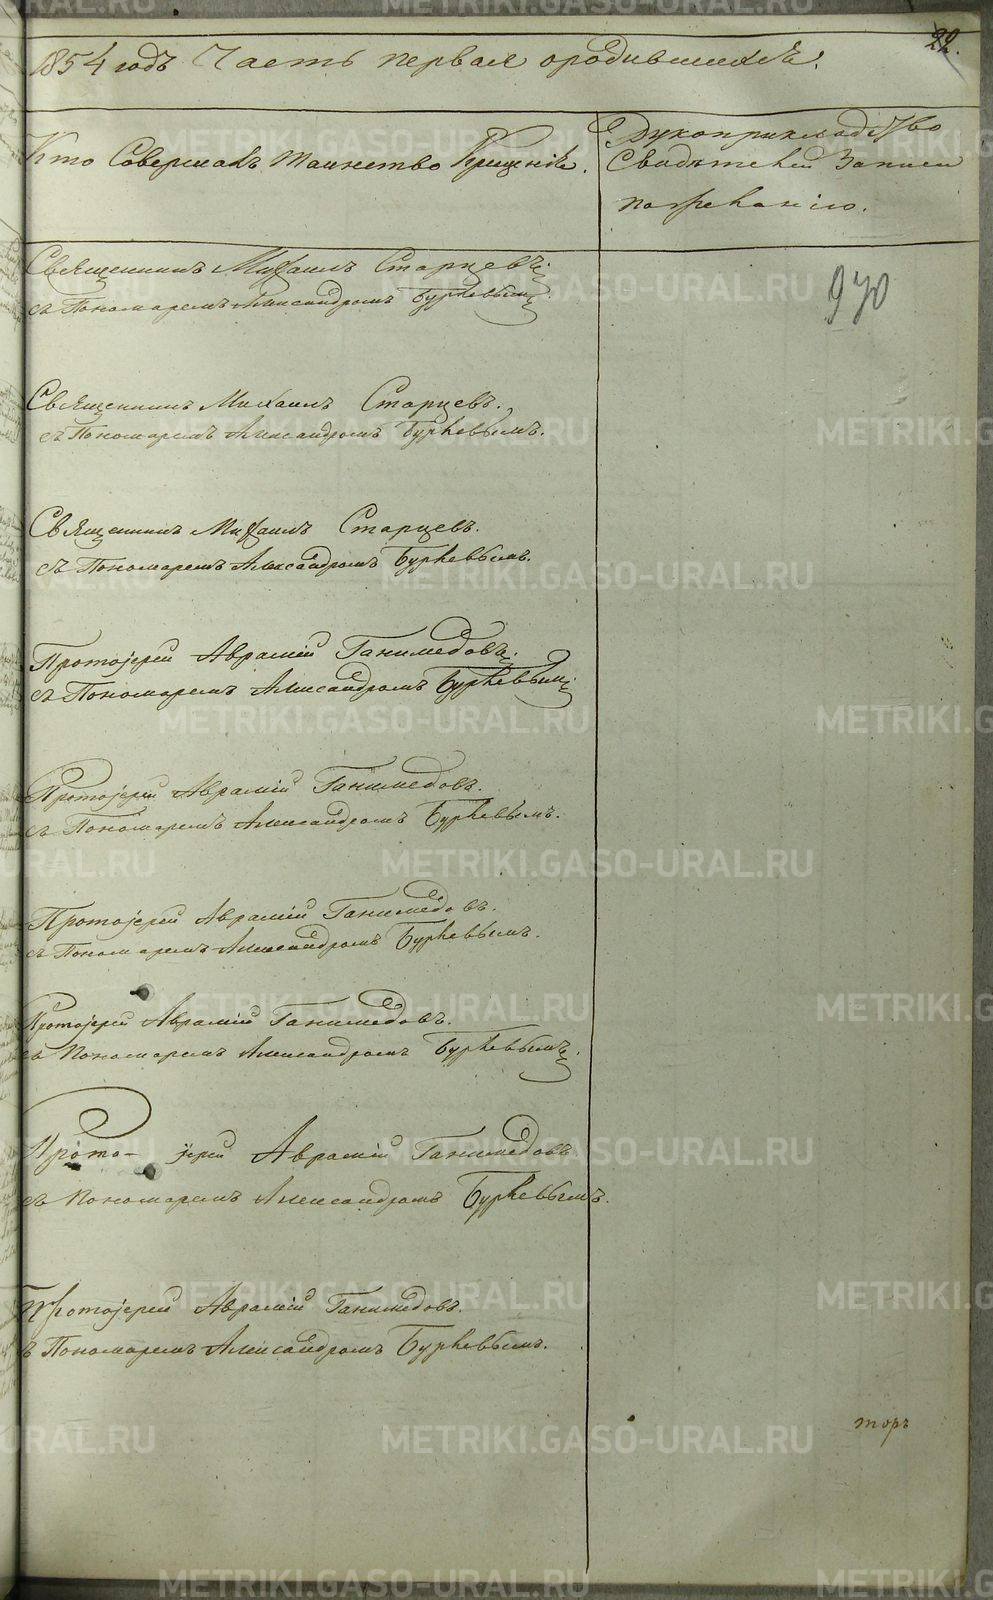 22.
1854 годъ Часть первая ородившихся.
Кто Совершалъ Таинство Крещенія.
Рукоприкладство
Свидѣтелей Записи
по желанію.
Священникъ Михаилъ Старцевъ.
съ Пономаремъ Александромъ Буркевымъ.
970
Священникъ Михаилъ Старцевъ.
съ Пономаремъ Александромъ Буркевымъ.
Священникъ Михаилъ Старцевъ.
съ Пономаремъ Александромъ Буркевымъ.
Протоjерей Аврамій Ганимедовъ.
съ Пономаремъ Александромъ Буркевымъ.
Протоjерей Аврамій Ганимедовъ.
съ Пономаремъ Александромъ Буркевымъ.
Протоjерей Аврамій Ганимедовъ.
съ Пономаремъ Александромъ Буркевымъ.
Протоjерей Аврамій Ганимедовъ.
съ Пономаремъ Александромъ Буркевымъ.
Прото- jерей Аврамій Ганимедовъ
съ Пономаремъ Александромъ Буркевымъ.
Протоjерей Аврамій Ганимедовъ.
съ Пономаремъ Александромъ Буркевымъ.
торъ
METRIKI.GASO-URAL.RU